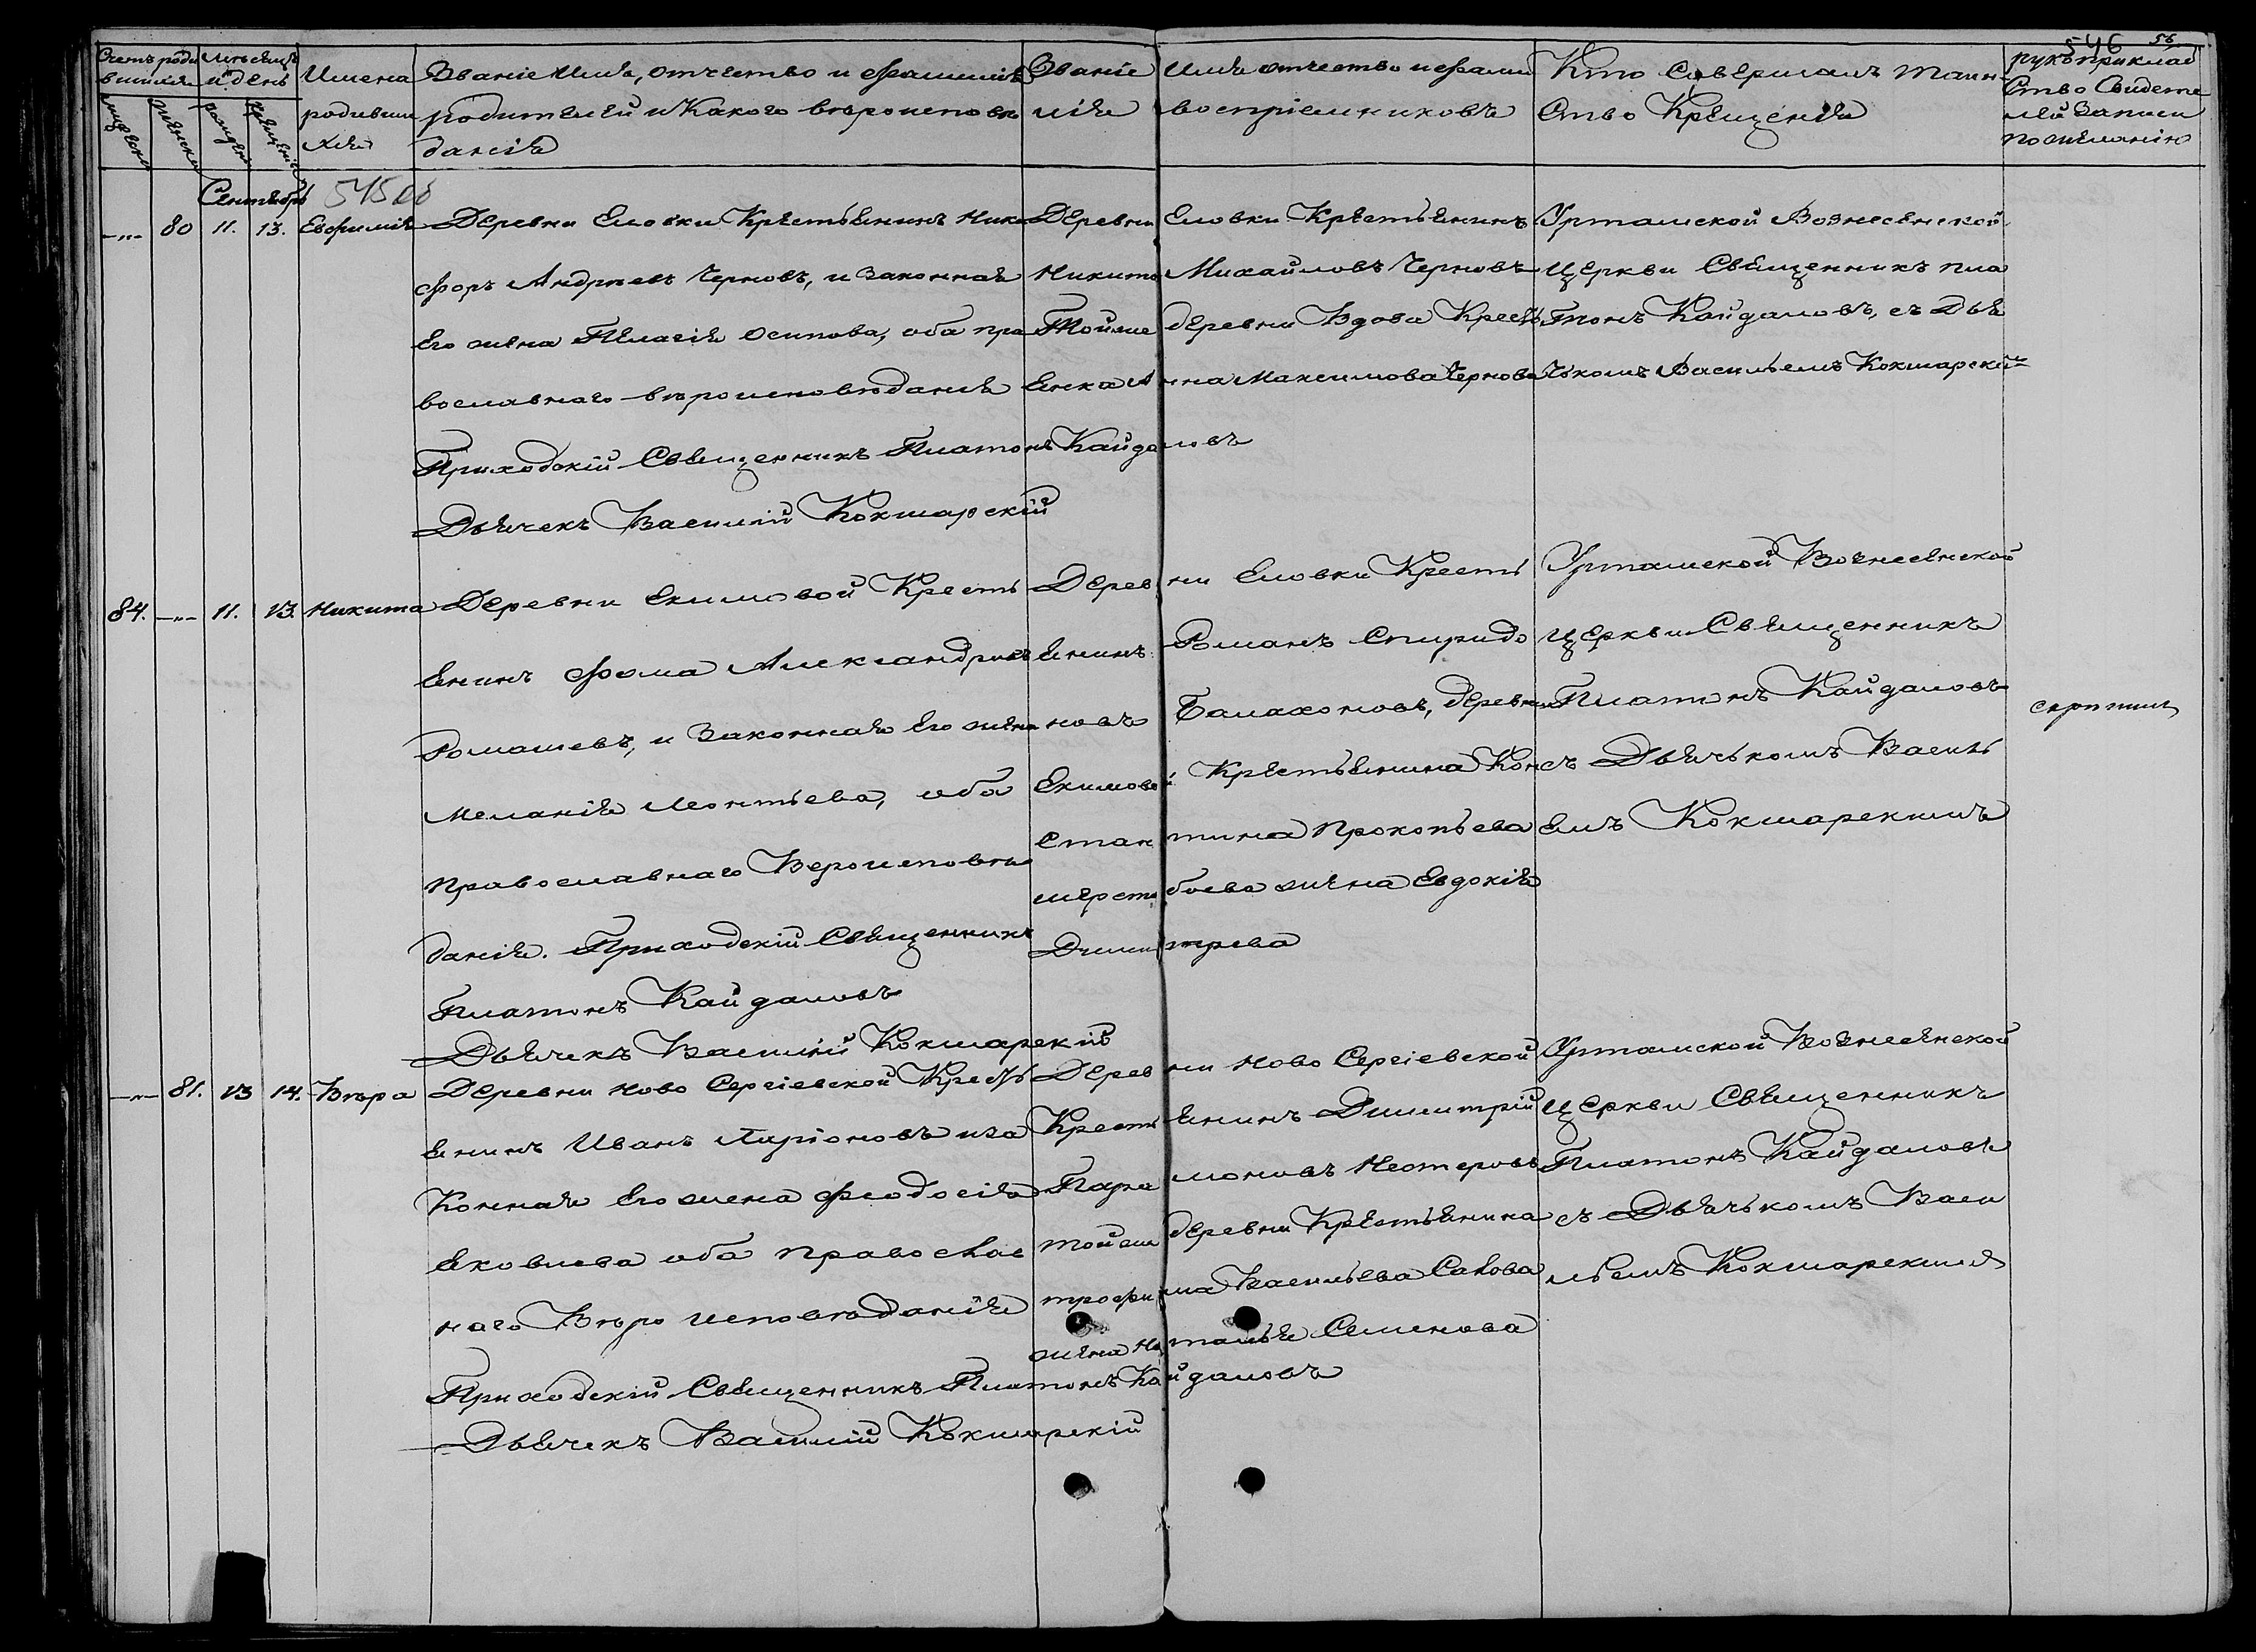 546 56
Счетъ роди
вшихся
Мѣсяцъ
и день
мужеска
женска
рожден
крещенія
Имена
родивши
хся
Званіе имя, отчество и фамилія
родителей и какого вѣроисповѣ
данія
Званіе имя отчество и фами
лія воспріемниковъ
Кто совершалъ таин
ство крещенія
рукоприклад
ство свидете
лей записи
по желанію
Сентябрь 545 об
-„- 80 11. 13. Евфимія
Деревни Еловки Крестьянинъ Ники
форъ Андреевъ Черновъ, и законная
его жена Пелагія Осипова, оба пра
вославнаго вѣроисповѣданія
Приходскій Священникъ Платонъ Кайдаловъ
Дьячекъ Василій Кокшарскій
Деревни Еловки Крестьянинъ
Никита Михайловъ Черновъ
Тойже деревни Вдова Кресть
янка Анна Максимова Чернова
Урташской Вознесенской
церкви Священникъ Пла
тонъ Кайдаловъ, съ Дья
чькомъ Васильемъ Кокшарски
84. -„- 11. 13. Никита
Деревни Екимовой Кресть
янинъ Фома Александровъ
Ромашевъ, и законная его жена
Меланія Леонтьева, оба
православнаго Вероисповѣ
данія. Приходскій Священникъ
Платонъ Кайдаловъ
Дьячекъ Василій Кокшарскій
Деревни Еловки Кресть
янинъ Романъ Спиридо
новъ Балахоновъ, деревни
Екимовой Крестьянина Кон
стантина Прокопьева
шерстобоева жена Евдокія
Димитрева
Урташской Вознесенской
церкви Священникъ
Платонъ Кайдаловъ
съ Дьячькомъ Василь
емъ Кокшарскимъ
-„- 81. 13 14. Вѣра
Деревни Ново Сергіевской Кресть
янинъ Иванъ Ларіоновъ и за
конная его жена Феодосія
Яковлева оба православ
наго Вѣро исповѣданія
Приходскій Священникъ Платонъ Кайдаловъ
Дьячекъ Василій Кокшарскій
Деревни Ново Сергіевской
Крестьянинъ Димитрій
Парамоновъ Нестеровъ
тойже деревни Крестьянина
трофима Васильева Сахова
жена Наталья Семенова
Урташской Вознесенской
церкви Священникъ
Платонъ Кайдаловъ
съ Дьячькомъ Васи
льемъ Кокшарскимъ